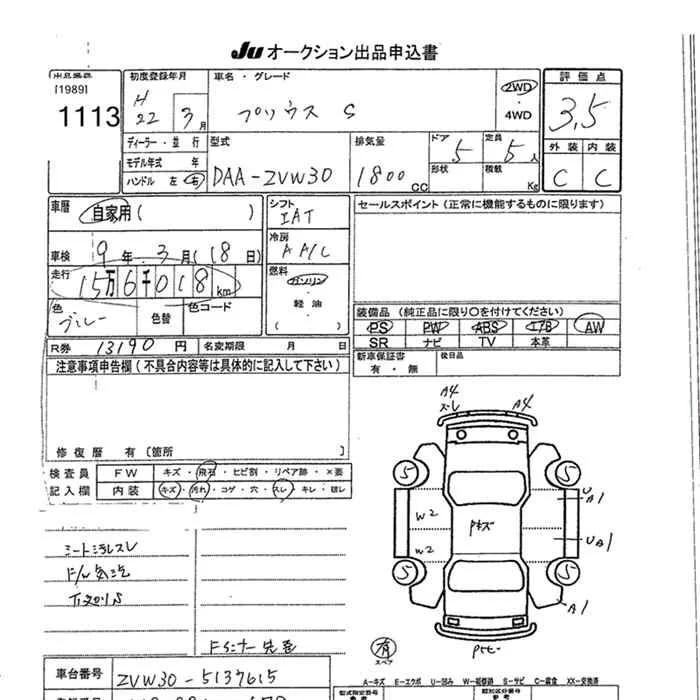 JU オークション出品申込書
出品番号
[1989]
1113
初度登録年月
H 22 年 3 月
車名・グレード
プリウス S
2WD
・
4WD
評価点
3.5
ディーラー・並行
モデル年式 年
ハンドル 左 右
型式
DAA-ZVW30
排気量
1800 CC
ドア 5
形状
定員 5 人
積載 Kg
外装 内装
C C
車歴 自家用 ( )
車検 9年 3月 (18日)
走行 15万6千018km
色 グレー
色替
色コード
シフト
IAT
冷房
AA/C
燃料
ガソリン
・
軽油
( )
セールスポイント (正常に機能するものに限ります)
装備品 (純正品に限り○を付けてください)
PS PW ABS エアB AW
SR ナビ TV 本革
新車保証書
有・無
後日品
R券 13190 円
名変期限 月 日
注意事項申告欄 (不具合内容等は具体的に記入して下さい)
修復歴 有 [箇所 ]
検査員
記入欄
FW キズ・飛石・ヒビ割・リペア跡・×要
内装 キズ・汚れ・コゲ・穴・スレ・キレ・破レ
シート汚レスレ
A4
スレ
A4
5
5
U
A1
W2
W2
Pキズ
UA1
5
5
A1
有
スペア
A-キズ E-エクボ U-凹み W-補修跡 S-サビ C-腐食 XX-交換済
車台番号
ZVW30-5137615
型式指定番号
類別区分番号